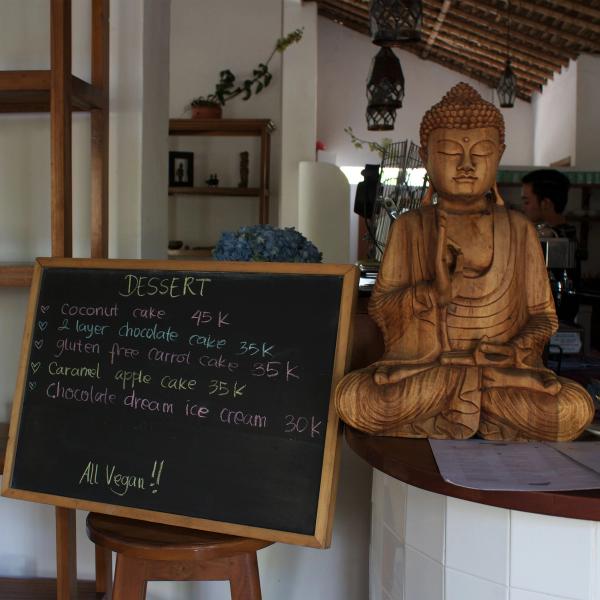 DESSERT
coconut cake 45K
2 layer chocolate cake 35K
gluten free carrot cake 35K
Caramel apple cake 35K
Chocolate dream ice cream 30K
All Vegan!!